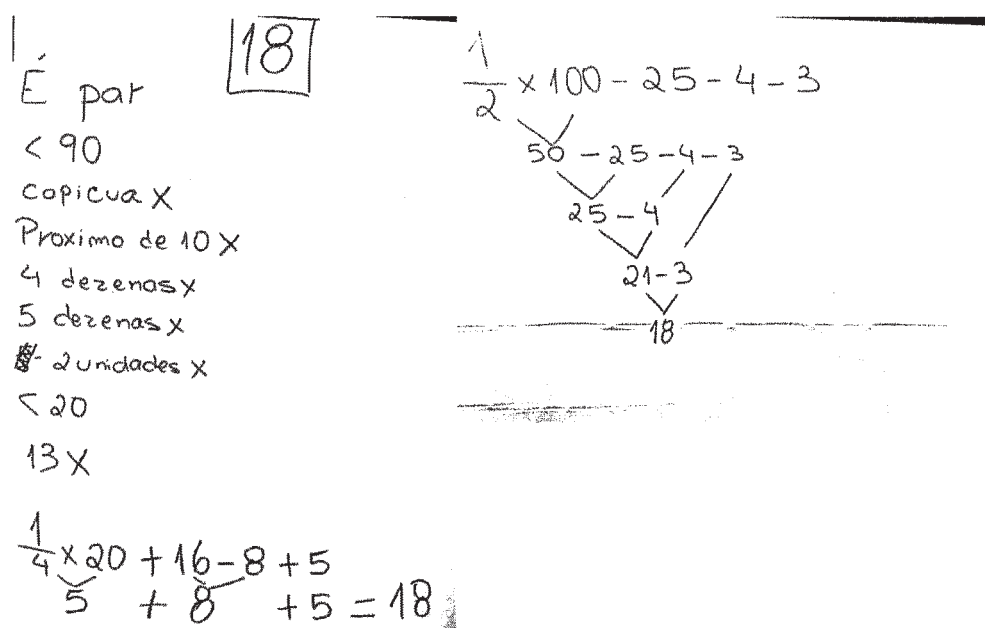 18
É par
< 90
copicua X
Proximo de 10 X
4 dezenas x
5 dezenas x
- 2 unidades x
< 20
13 X
1/4 x 20 + 16 - 8 + 5
5 + 8 + 5 = 18
1/2 x 100 - 25 - 4 - 3
50 - 25 - 4 - 3
25 - 4
21 - 3
18